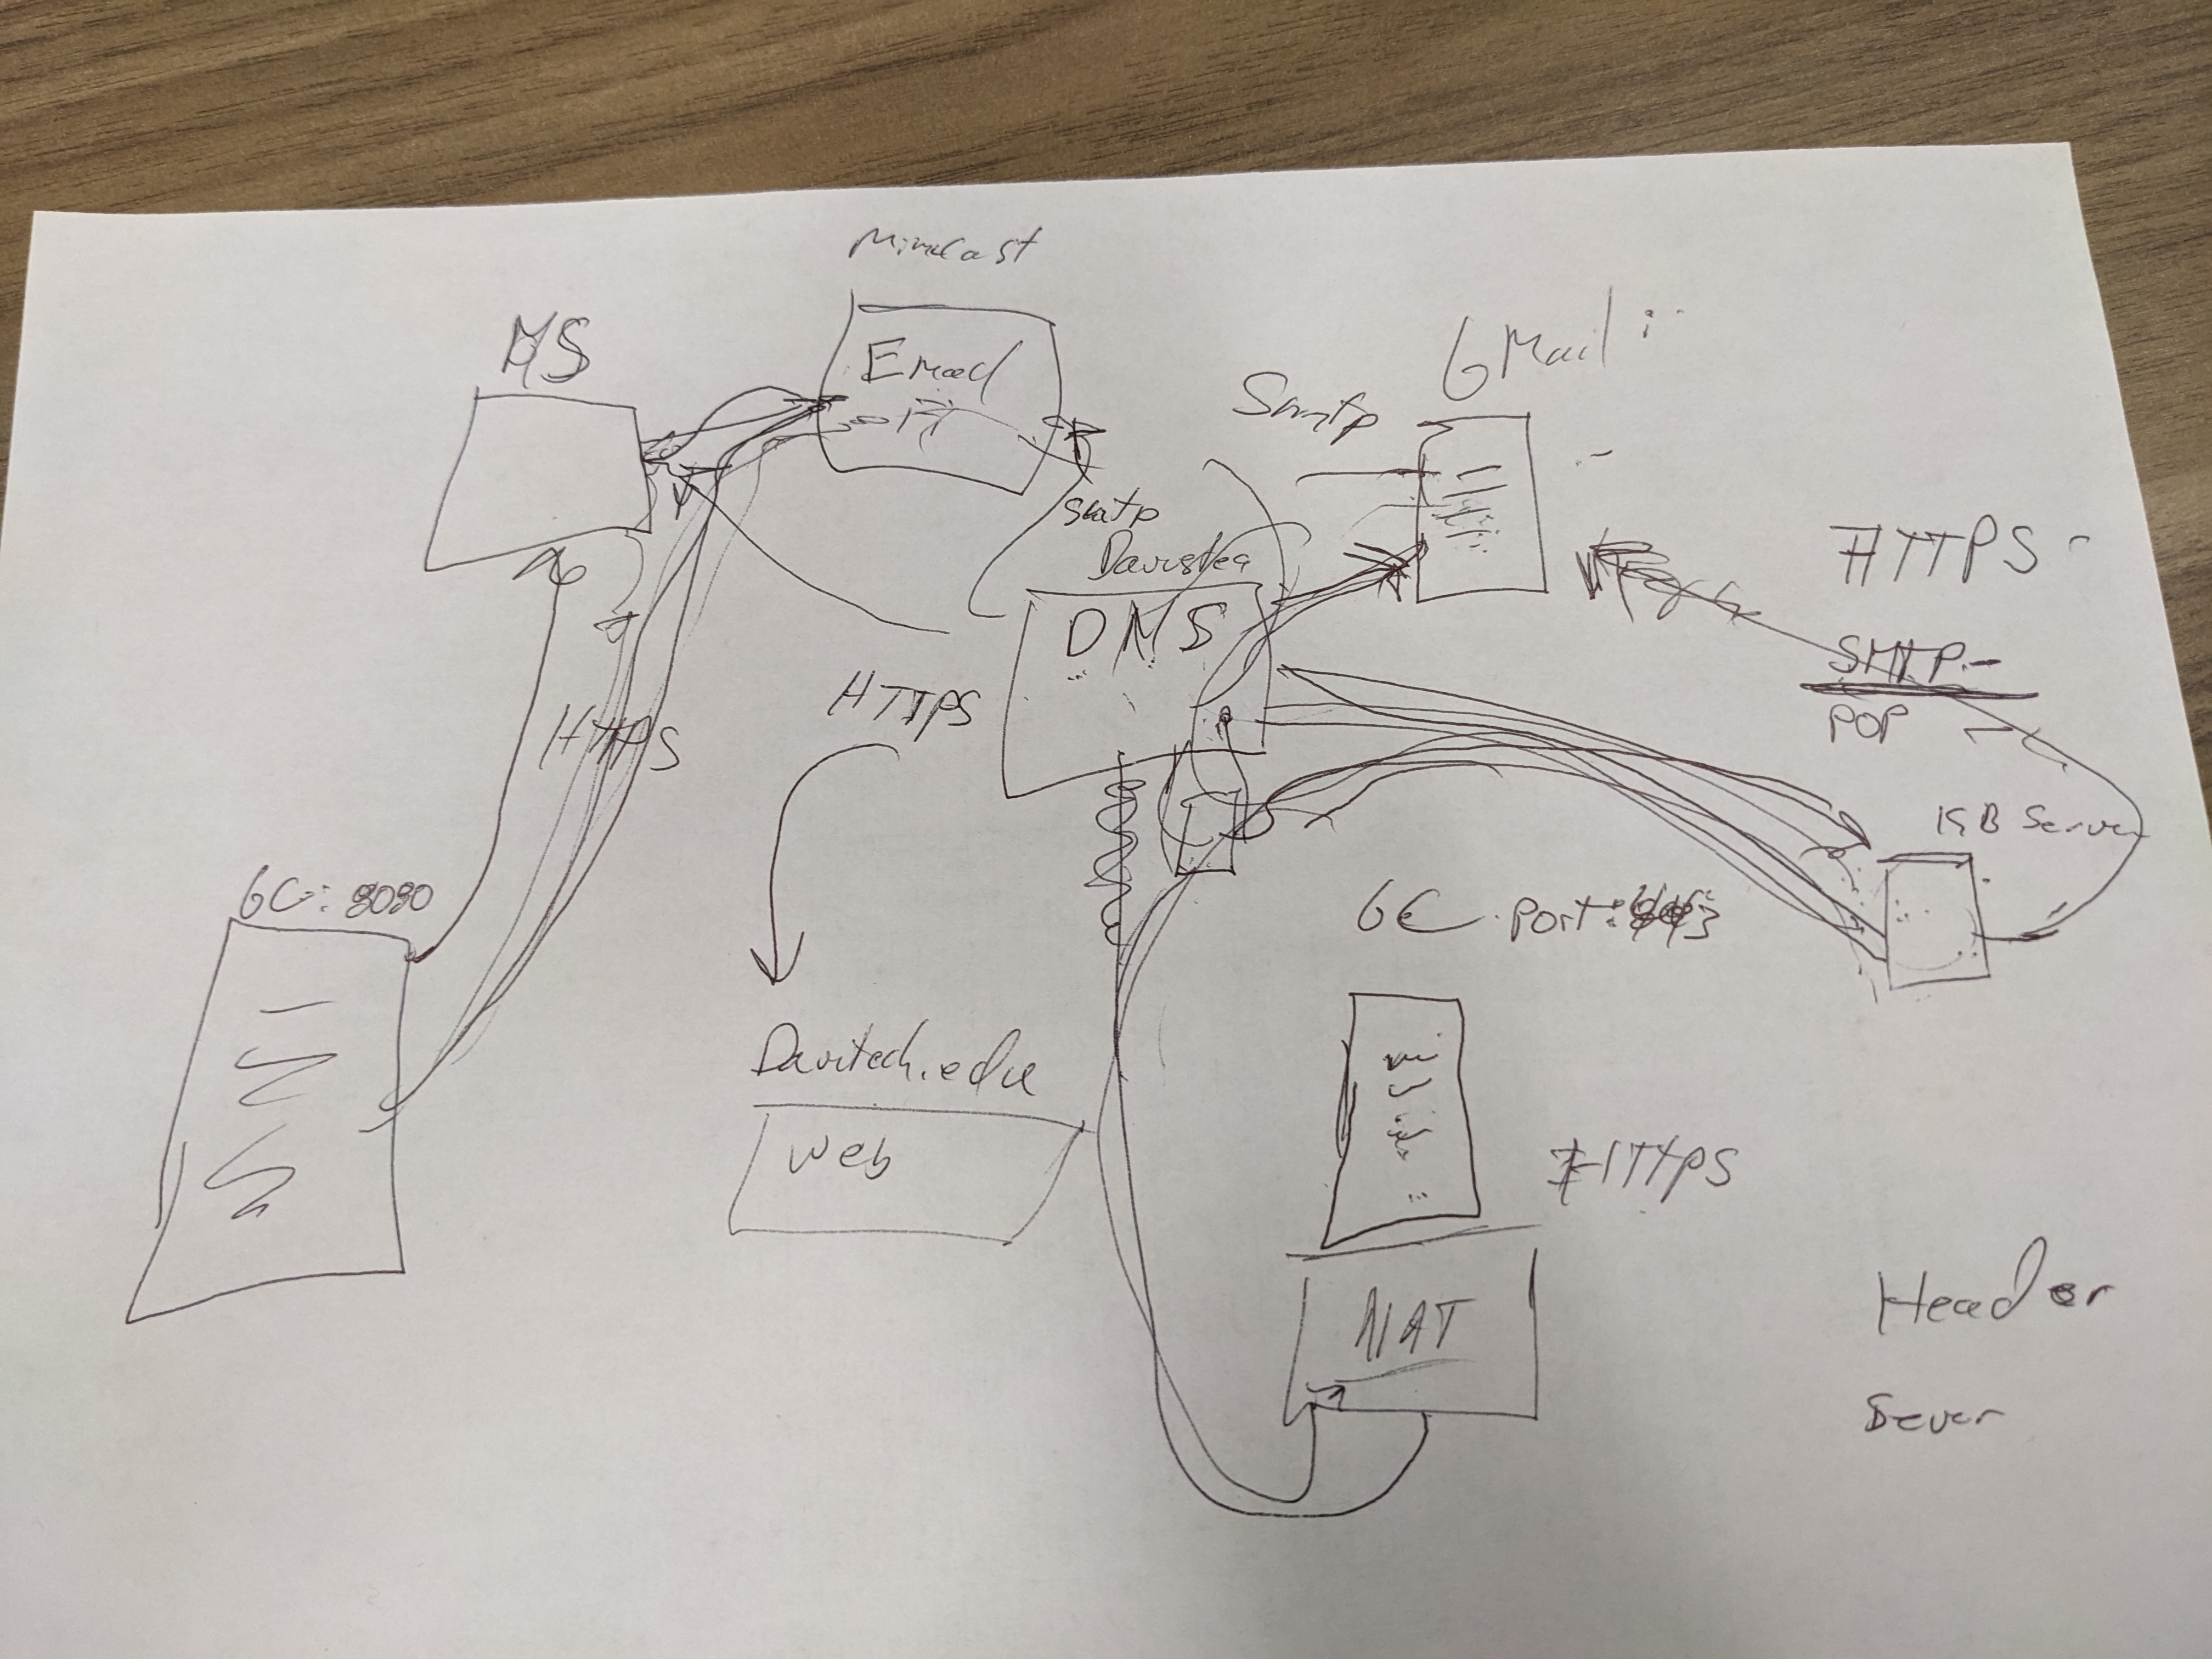 Mimecast
MS
Email
GMail :
Smtp
smtp
HTTPS -
DNS
SMTP -
HTTPS
POP
HTTPS
KGB Server
GC: 8080
GC Port:
Davitech.edu
Web
HTTPS
NAT
Header
Sever